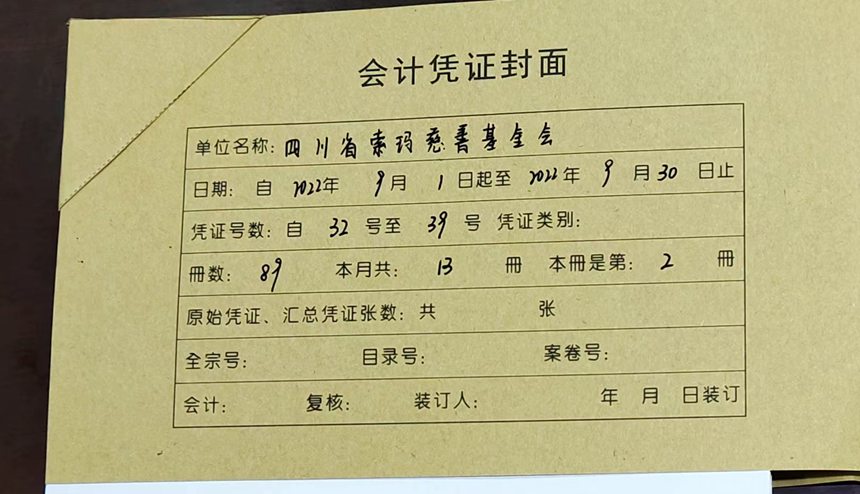 会计凭证封面
单位名称：四川省索玛慈善基金会
日期：自 2022年 9月 1日起至 2022年 9月30日止
凭证号数：自 32 号至 39 号 凭证类别：
冊数：89 本月共：13 冊 本冊是第：2 冊
原始凭证、汇总凭证张数：共 张
全宗号： 目录号： 案卷号：
会计： 复核： 装订人： 年 月 日装订